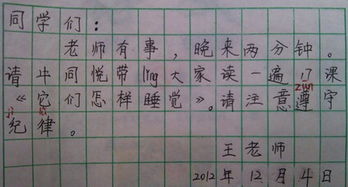 同学们：
老师有事，晚来两分钟。
请牛同悦带lǐng大家读一遍17课
《它们怎样睡觉》。请注意遵zūn守
纪jì律lǜ。
王老师
2012年12月4日